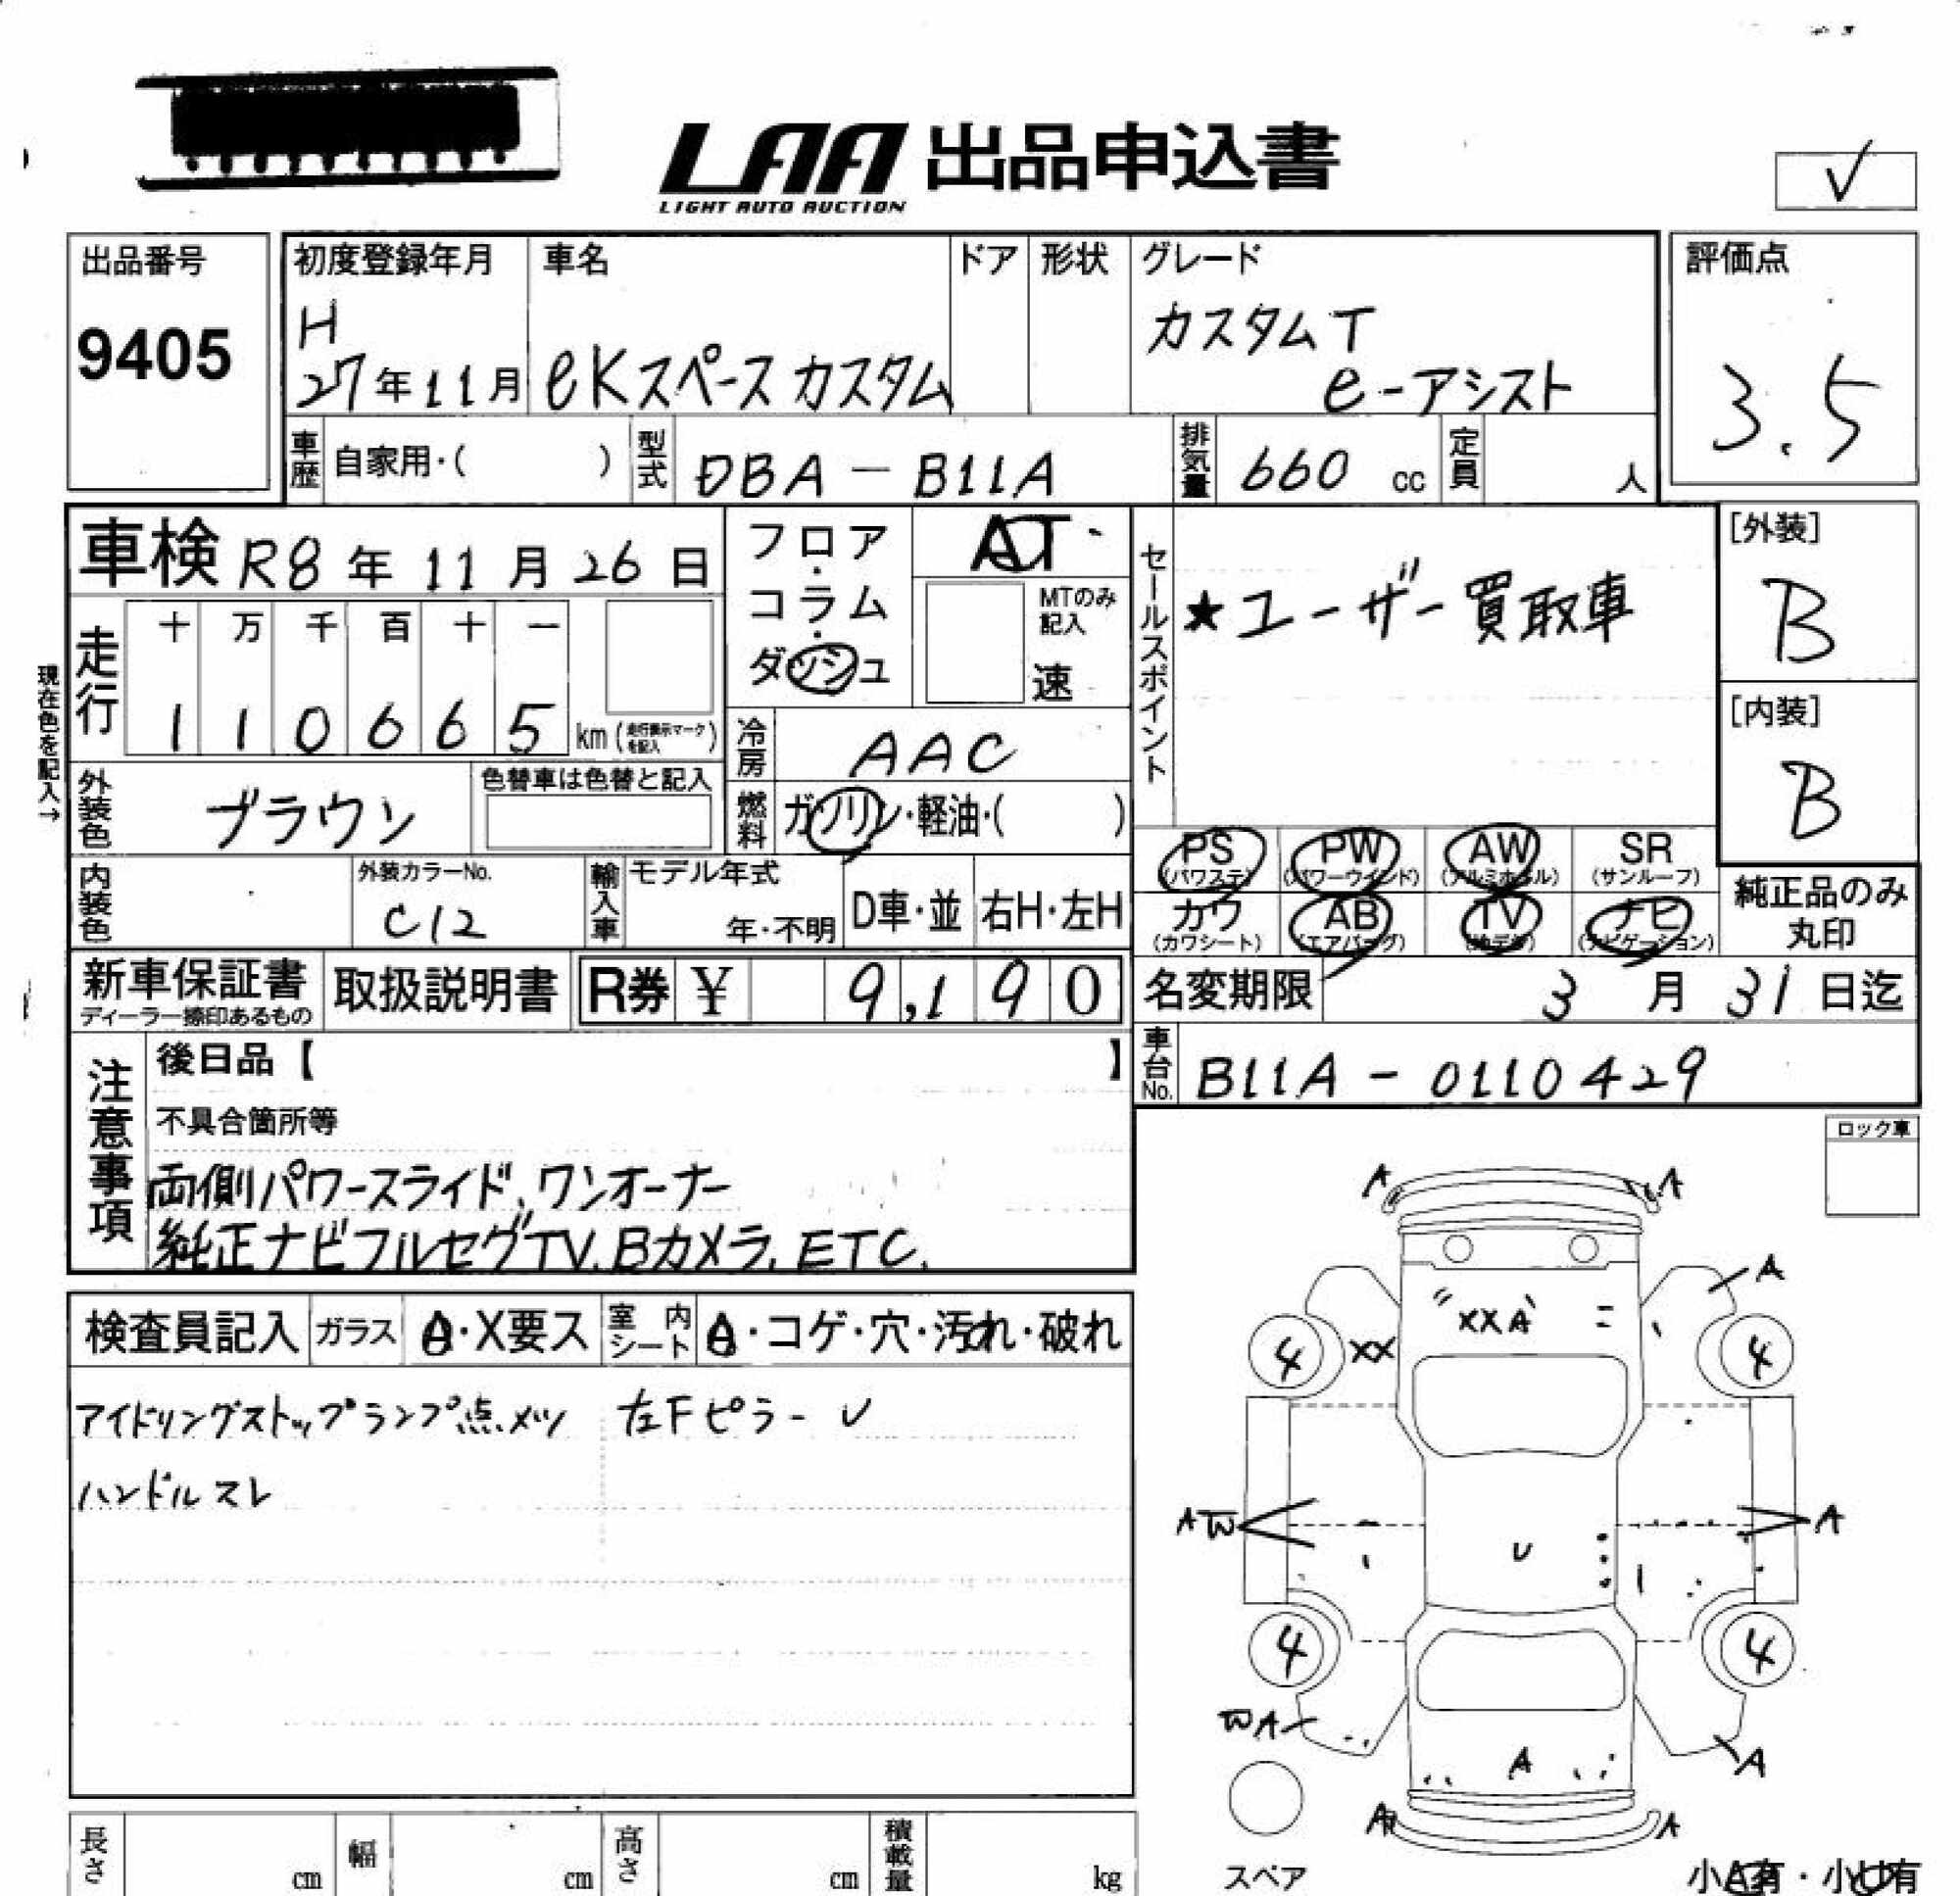 LAA 出品申込書
LIGHT AUTO AUCTION
✓
出品番号
9405
初度登録年月
H
27年11月
車名
eKスペースカスタム
ドア
形状
グレード
カスタムT
e-アシスト
評価点
3.5
車歴 自家用・( )
型式 DBA-B11A
排気量 660 cc
定員 人
車検 R8年11月26日
現在色を記入→
走行
十 万 千 百 十 一
1 1 0 6 6 5 km(走行表示マークを記入)
フロア・コラム・ダッシュ
AT
MTのみ記入
速
セールスポイント
★ユーザー買取車
[外装]
B
[内装]
B
外装色 ブラウン
色替車は色替と記入
冷房 AAC
燃料 ガソリン・軽油・( )
内装色
外装カラーNo.
C12
輸入車
モデル年式
年・不明
D車・並
右H・左H
PS (パワステ)
PW (パワーウインド)
AW (アルミホイル)
SR (サンルーフ)
カワ (カワシート)
AB (エアバッグ)
TV (地デジ)
ナビ (ナビゲーション)
純正品のみ丸印
新車保証書
ディーラー捺印あるもの
取扱説明書
R券 ¥ 9,190
名変期限 3月31日迄
車台No. B11A-0110429
注意事項
後日品【 】
不具合箇所等
両側パワースライド、ワンオーナー
純正ナビフルセグTV.Bカメラ.ETC.
ロック車
検査員記入
ガラス A・X要ス
室内シート A・コゲ・穴・汚れ・破れ
アイドリングストップランプ点メツ 左Fピラー U
ハンドルスレ
A A
A
XXA
4 XX 4
AW A
U
4 4
WA
A A
A A
スペア
小A有・小U有
長さ cm
幅 cm
高さ cm
積載量 kg